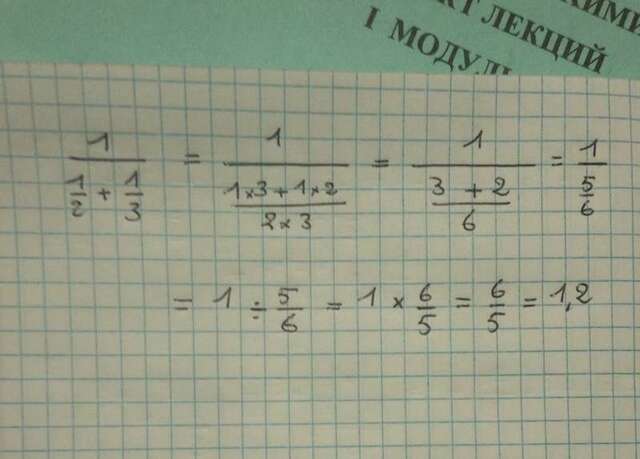 КИМИ
КТ ЛЕКЦИЙ
I МОДУЛ
1/(1/2 + 1/3) = 1/((1×3+1×2)/(2×3)) = 1/((3 + 2)/6) = 1/(5/6)
= 1 ÷ 5/6 = 1 × 6/5 = 6/5 = 1,2